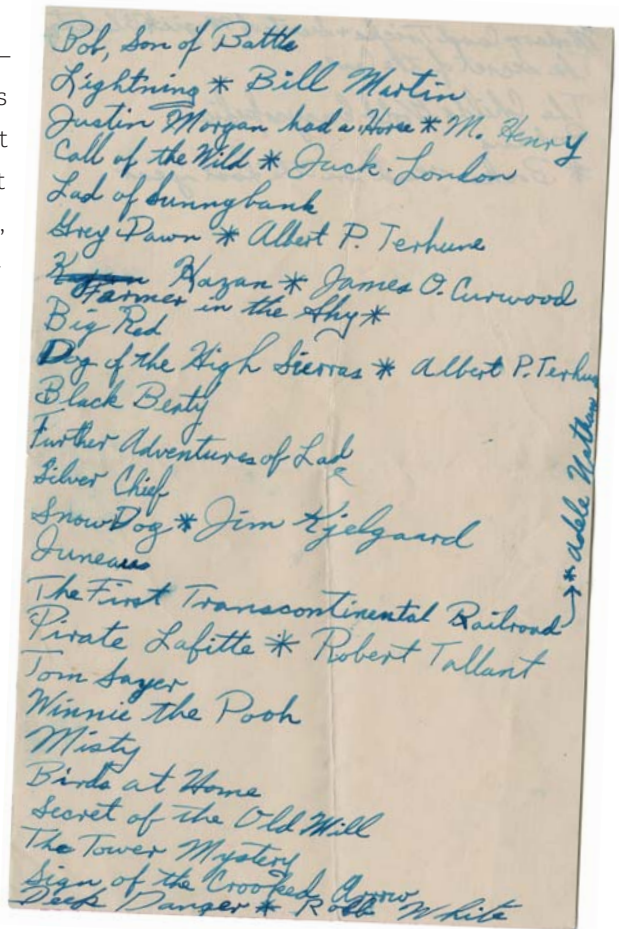 s
t
t
,
Bob, Son of Battle
Lightning * Bill Martin
Justin Morgan had a Horse * M. Henry
Call of the Wild * Jack London
Lad of Sunnybank
Grey Dawn * Albert P. Terhune
Kazan * James O. Curwood
Farmer in the Sky *
Big Red
Dog of the High Sierras * Albert P. Terhu
Black Beuty
Further Adventures of Lad
Silver Chief
Snow Dog * Jim Kjelgaard
Juneau
The First Transcontinental Railroad
* Adele Nathan
Pirate Lafitte * Robert Tallant
Tom Sayer
Winnie the Pooh
Misty
Birds at Home
Secret of the Old Mill
The Tower Mystery
Sign of the Crooked Arrow
Deep Danger * Robb White